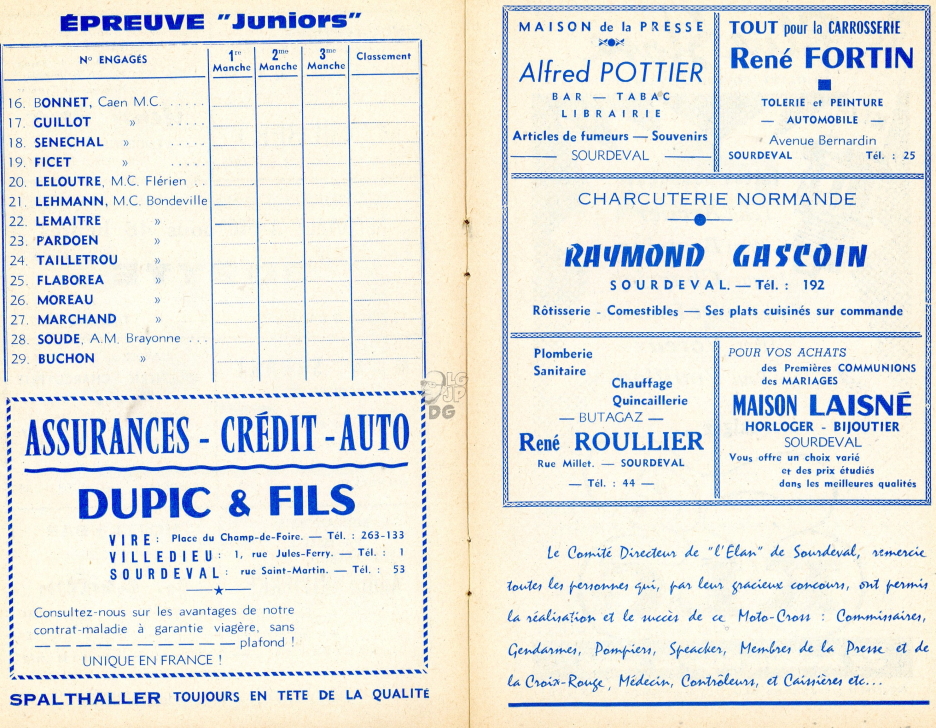 ÉPREUVE "Juniors"
Nº ENGAGÉS 1re Manche 2me Manche 3me Manche Classement
16. BONNET, Caen M.C. . . . . .
17. GUILLOT » . . . . .
18. SENECHAL » . . . . .
19. FICET » . . . . .
20. LELOUTRE, M.C. Flérien . .
21. LEHMANN, M.C. Bondeville
22. LEMAITRE »
23. PARDOEN »
24. TAILLETROU »
25. FLABOREA »
26. MOREAU »
27. MARCHAND »
28. SOUDE, A.M. Brayonne . . .
29. BUCHON »
ASSURANCES - CRÉDIT - AUTO
DUPIC & FILS
VIRE : Place du Champ-de-Foire. — Tél. : 263-133
VILLEDIEU : 1, rue Jules-Ferry. — Tél. : 1
SOURDEVAL : rue Saint-Martin. — Tél. : 53
Consultez-nous sur les avantages de notre
contrat-maladie à garantie viagère, sans
— — — — — — — — — — plafond !
UNIQUE EN FRANCE !
SPALTHALLER TOUJOURS EN TETE DE LA QUALITÉ
LG
JP
DG
MAISON de la PRESSE
Alfred POTTIER
BAR — TABAC
LIBRAIRIE
Articles de fumeurs — Souvenirs
SOURDEVAL
TOUT pour la CARROSSERIE
René FORTIN
TOLERIE et PEINTURE
— AUTOMOBILE —
Avenue Bernardin
SOURDEVAL Tél. : 25
CHARCUTERIE NORMANDE
RAYMOND GASCOIN
SOURDEVAL. — Tél. : 192
Rôtisserie - Comestibles — Ses plats cuisinés sur commande
Plomberie
Sanitaire
Chauffage
Quincaillerie
— BUTAGAZ —
René ROULLIER
Rue Millet. — SOURDEVAL
— Tél. : 44 —
POUR VOS ACHATS
des Premières COMMUNIONS
des MARIAGES
MAISON LAISNÉ
HORLOGER - BIJOUTIER
SOURDEVAL
Vous offre un choix varié
et des prix étudiés
dans les meilleures qualités
Le Comité Directeur de "l'Elan" de Sourdeval, remercie
toutes les personnes qui, par leur gracieux concours, ont permis
la réalisation et le succès de ce Moto-Cross : Commissaires,
Gendarmes, Pompiers, Speacker, Membres de la Presse et de
la Croix-Rouge, Médecin, Contrôleurs, et Caissières etc...